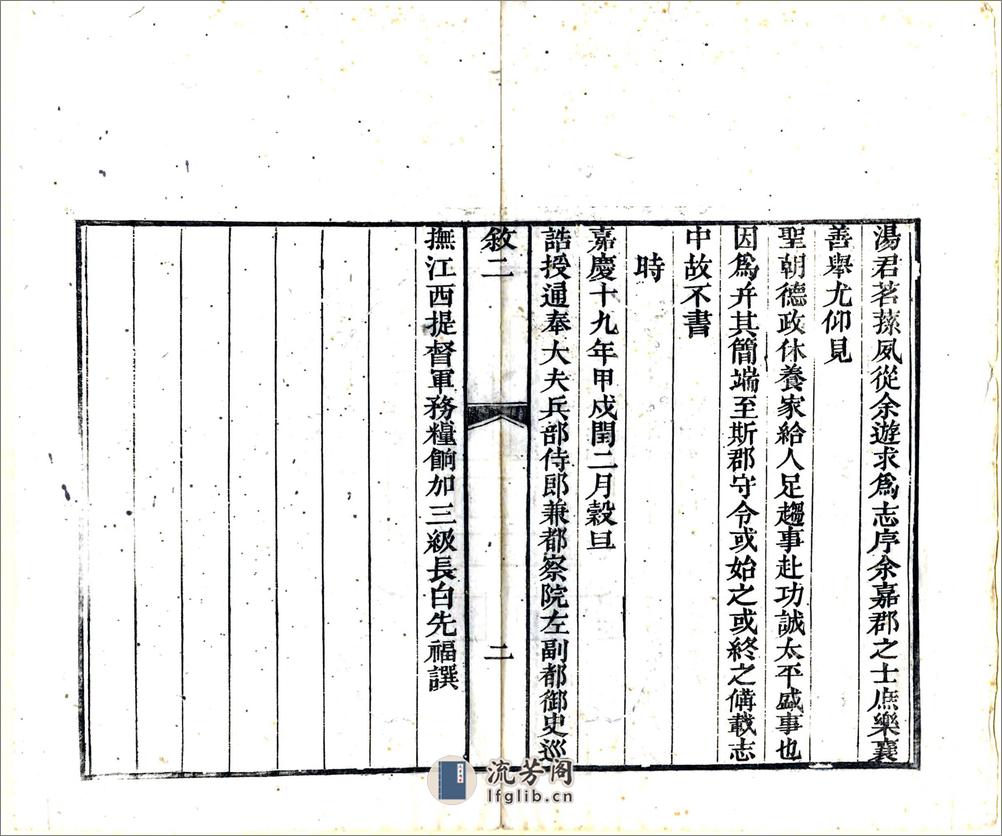 湯君茗蓀夙從余遊求爲志序余嘉郡之士庶樂襄
善舉尤仰見
聖朝德政休養家給人足趨事赴功誠太平盛事也
因爲弁其簡端至斯郡守令或始之或終之備載志
中故不書
時
嘉慶十九年甲戍閏二月穀旦
誥授通奉大夫兵部侍郎兼都察院左副都御史巡
敘二
二
撫江西提督軍務糧餉加三級長白先福譔
流芳阁
lfglib.cn